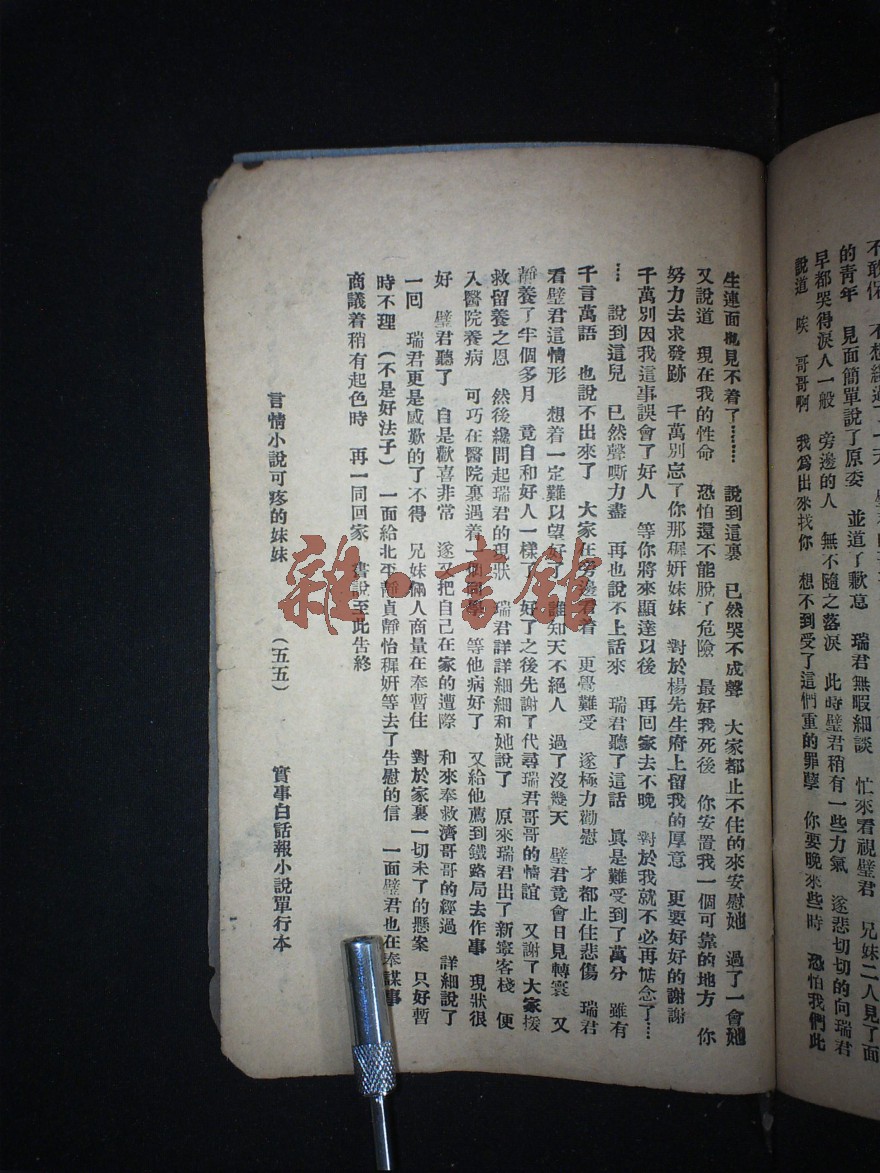 不敢保
的青年　見面簡單說了原委　並道了歉意　瑞君無暇細談　忙來看視璧君　兄妹二人見了面
早都哭得淚人一般　旁邊的人　無不隨之落淚　此時璧君稍有一些力氣　遂悲切切的向瑞君
說道　唉　哥哥啊　我爲出來找你　想不到受了這們重的罪孽　你要晚來些時　恐怕我們此
生連面也見不着了………　說到這裏　已然哭不成聲　大家都止不住的來安慰她　過了一會她
又說道　現在我的性命　恐怕還不能脫了危險　最好我死後　你安置我一個可靠的地方　你
努力去求發跡　千萬別忘了你那穉妍妹妹　對於楊先生府上留我的厚意　更要好好的謝謝
千萬別因我這事誤會了好人　等你將來顯達以後　再回家去不晚　對於我就不必再惦念了…
…　說到這兒　已然聲嘶力盡　再也說不上話來　瑞君聽了這話　眞是難受到了萬分　雖有
千言萬語　也說不出來了　大家在旁邊看着　更覺難受　遂極力勸慰　才都止住悲傷　瑞君
看璧君這情形　想着一定難以望好了　誰知天不絕人　過了沒幾天　璧君竟會日見轉寰　又
靜養了半個多月　竟自和好人一樣了　好了之後先謝了代尋瑞君哥哥的情誼　又謝了大家援
救留養之恩　然後纔問起瑞君的現狀　瑞君詳詳細細和她說了　原來瑞君出了新寧客棧　便
入醫院養病　可巧在醫院裏遇着一個同學　等他病好了　又給他薦到鐵路局去作事　現狀很
好　璧君聽了　自是歡喜非常　遂又把自己在家的遭際　和來奉救濟哥哥的經過　詳細說了
一回　瑞君更是感歎的了不得　兄妹倆人商量在奉暫住　對於家裏一切未了的懸案　只好暫
時不理　（不是好法子）　一面給北平靜貞靜怡穉妍等去了告慰的信　一面璧君也在奉謀事
商議着稍有起色時　再一同回家　書說至此告終
言情小說可疼的妹妹　（五五）　實事白話報小說單行本
雜·書館